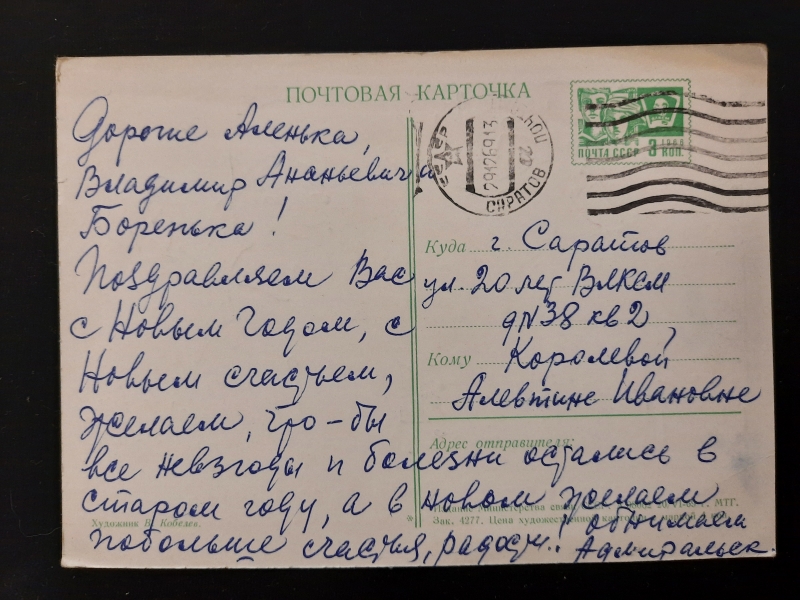 ПОЧТОВАЯ КАРТОЧКА
ПОЧТА СССР 3 КОП.
СССР
291269.13
САРАТОВ
Дорогие Аленька,
Владимир Ананьевич и
Боренька!
Поздравляем Вас
с Новым Годом, с
Новым счастьем,
желаем, что-бы
все невзгоды и болезни остались в
старом году, а в новом желаем
побольше счастья, радости.
обнимаем
Адмиральск.
Куда г. Саратов
ул. 20 лет ВЛКСМ
д N 38 кв 2,
Кому Королевой
Алевтине Ивановне
Адрес отправителя:
Издание Министерства связи
МТГ.
Зак. 4277. Цена художественной карточки с маркой 4 коп.
Художник В. Кобелев.